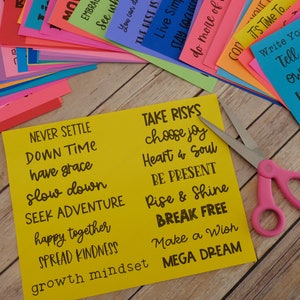 NEVER SETTLE
DOWN TIME
have grace
slow down
SEEK ADVENTURE
happy together
SPREAD KINDNESS
growth mindset
TAKE RISKS
choose joy
Heart & Soul
BE PRESENT
Rise & Shine
BREAK FREE
Make a Wish
MEGA DREAM
EMBRACE
see wh
Live Simp
do more of
IT'S TIME TO
Write You
Tell